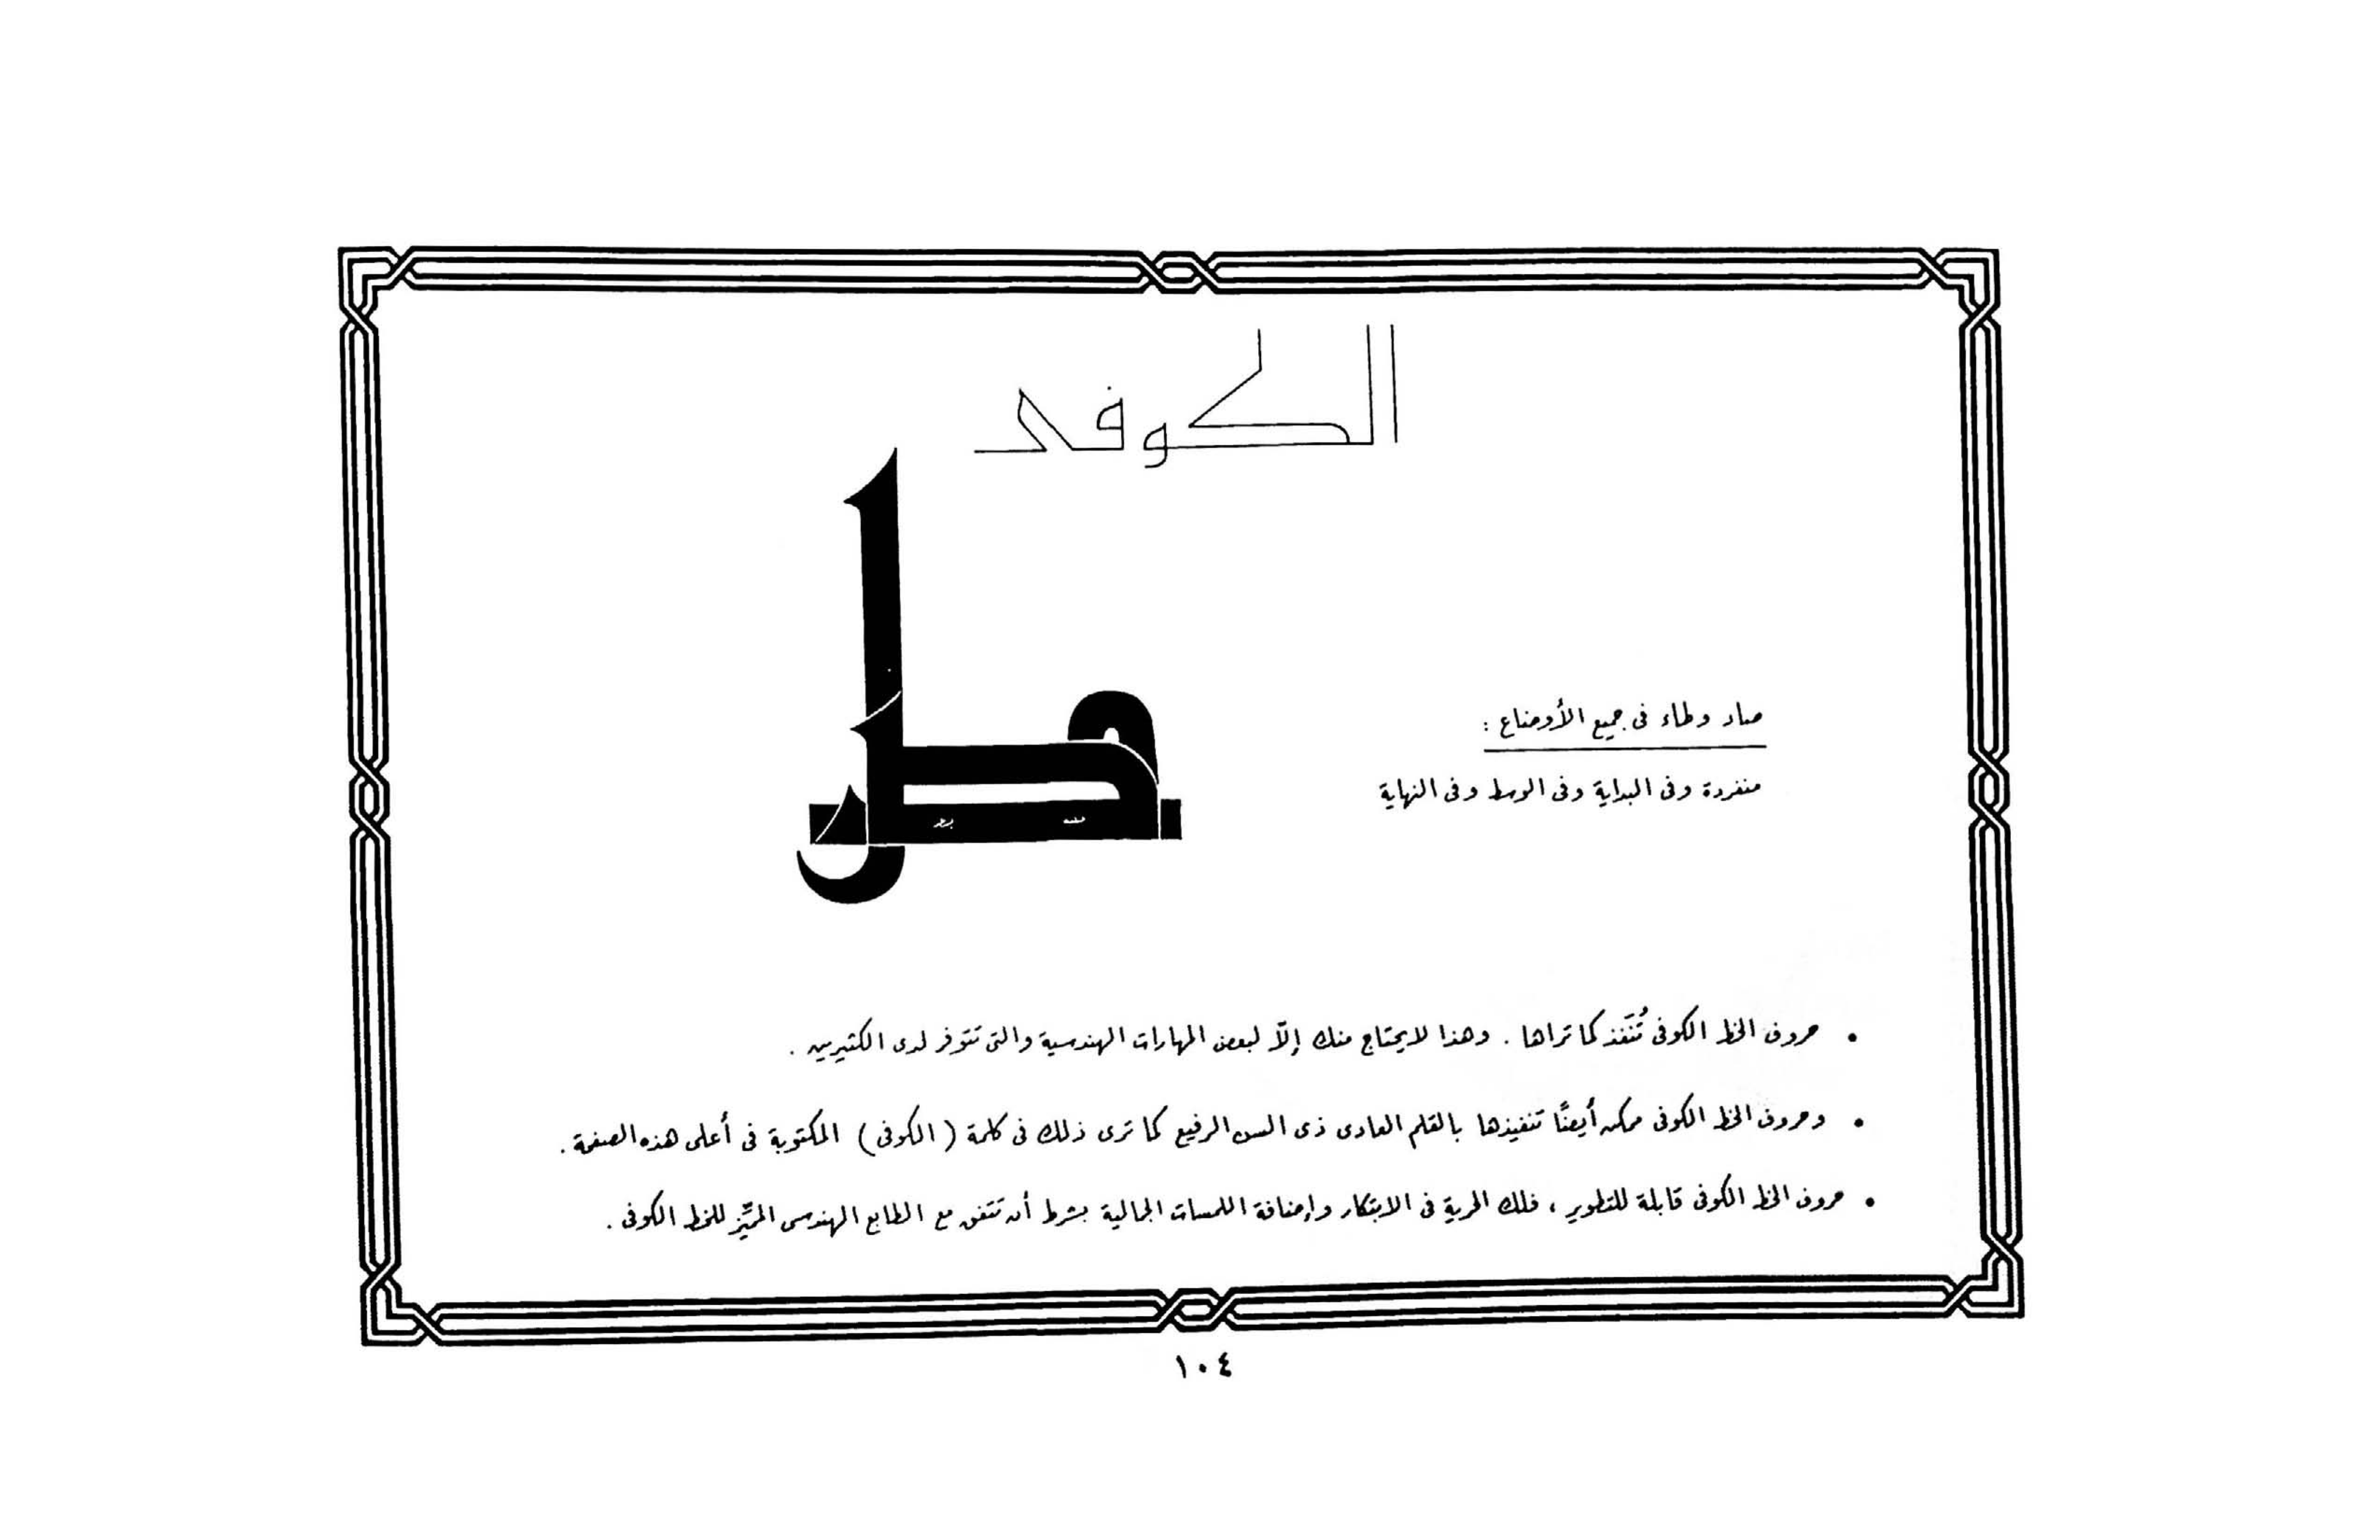 الكوفى
صاد وطاء فى جميع الأوضاع :
منفردة وفى البداية وفى الوسط وفى النهاية
• حروف الخط الكوفى تُنَفَذ كما تراها . وهذا لا يحتاج منك إلاّ لبعض المهارات الهندسية والتى تتوفر لدى الكثيرين .
• وحروف الخط الكوفى ممكن أيضًا تنفيذها بالقلم العادى ذى السن الرفيع كما ترى ذلك فى كلمة ( الكوفى ) المكتوبة فى أعلى هذه الصفحة .
• حروف الخط الكوفى قابلة للتطوير ، فلك الحرية فى الابتكار وإضافة اللمسات الجمالية بشرط أن تتفق مع الطابع الهندسى المميِّز للخط الكوفى .
١٠٤